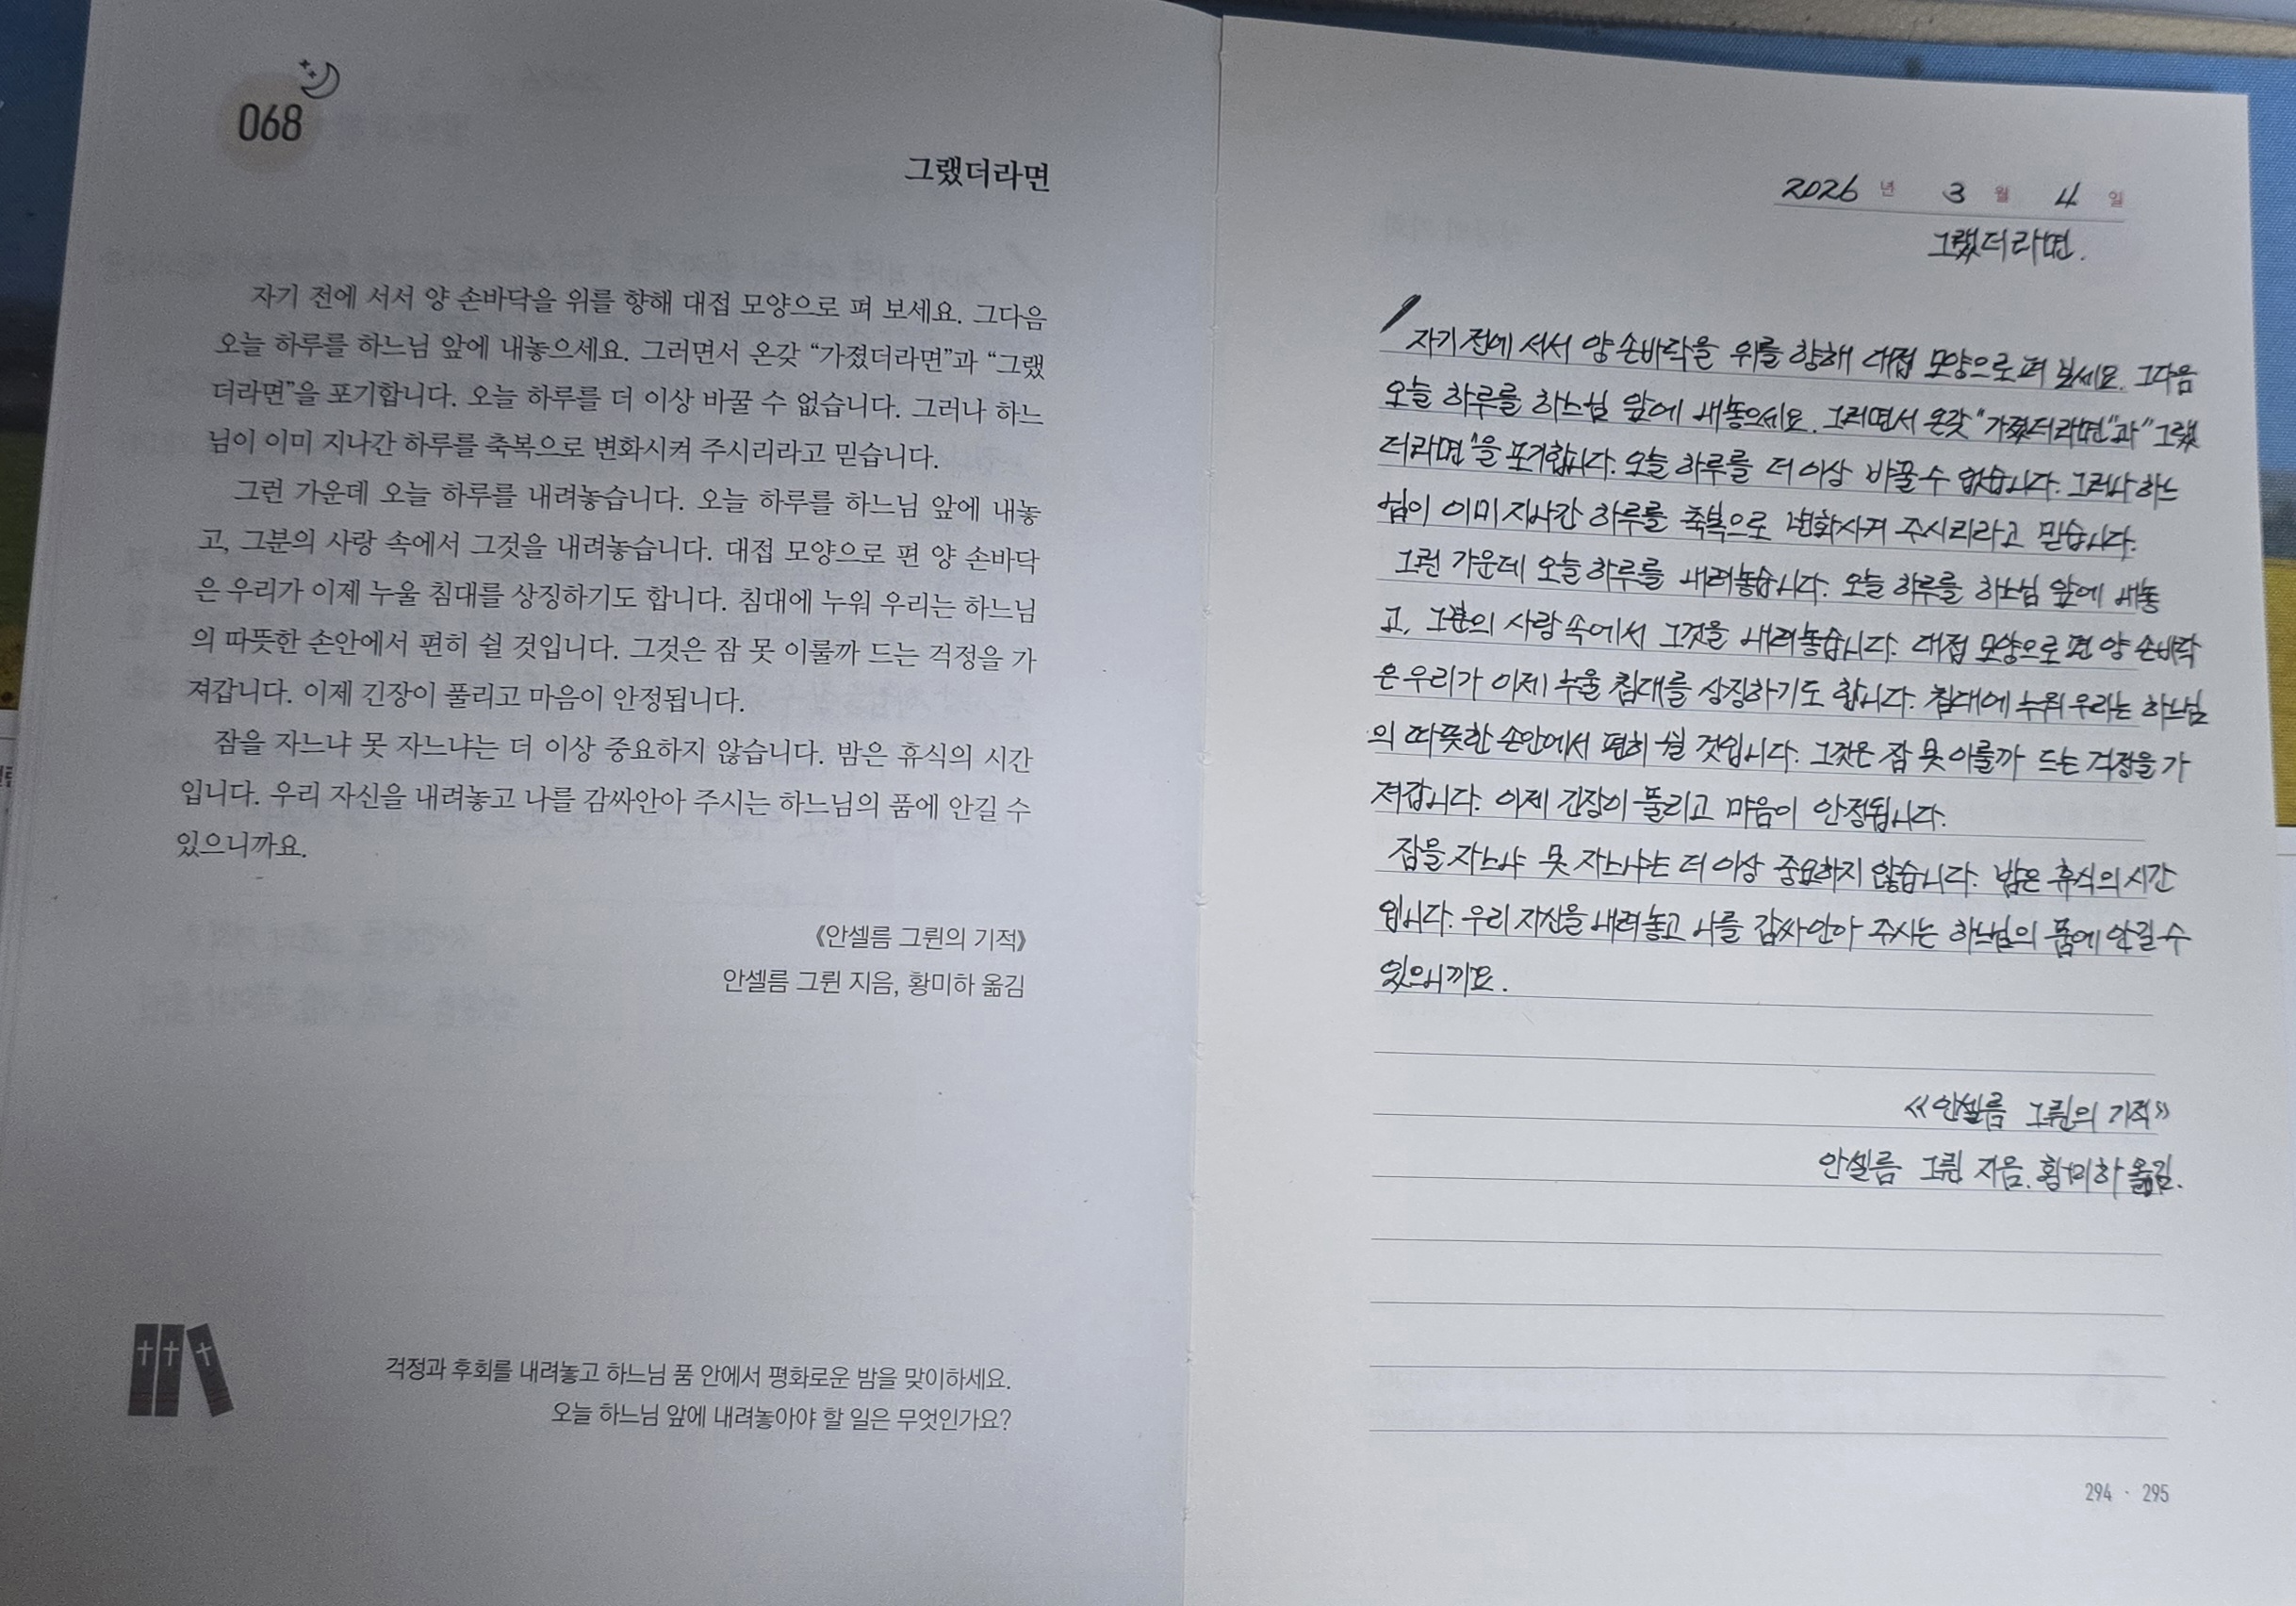 068
그랬더라면
자기 전에 서서 양 손바닥을 위를 향해 대접 모양으로 펴 보세요. 그다음
오늘 하루를 하느님 앞에 내놓으세요. 그러면서 온갖 “가졌더라면”과 “그랬
더라면”을 포기합니다. 오늘 하루를 더 이상 바꿀 수 없습니다. 그러나 하느
님이 이미 지나간 하루를 축복으로 변화시켜 주시리라고 믿습니다.
그런 가운데 오늘 하루를 내려놓습니다. 오늘 하루를 하느님 앞에 내놓
고, 그분의 사랑 속에서 그것을 내려놓습니다. 대접 모양으로 편 양 손바닥
은 우리가 이제 누울 침대를 상징하기도 합니다. 침대에 누워 우리는 하느님
의 따뜻한 손안에서 편히 쉴 것입니다. 그것은 잠 못 이룰까 드는 걱정을 가
져갑니다. 이제 긴장이 풀리고 마음이 안정됩니다.
잠을 자느냐 못 자느냐는 더 이상 중요하지 않습니다. 밤은 휴식의 시간
입니다. 우리 자신을 내려놓고 나를 감싸안아 주시는 하느님의 품에 안길 수
있으니까요.
《안셀름 그륀의 기적》
안셀름 그륀 지음, 황미하 옮김
걱정과 후회를 내려놓고 하느님 품 안에서 평화로운 밤을 맞이하세요.
오늘 하느님 앞에 내려놓아야 할 일은 무엇인가요?
2026 년 3 월 4 일
그랬더라면.
자기 전에 서서 양 손바닥을 위를 향해 대접 모양으로 펴 보세요. 그다음
오늘 하루를 하느님 앞에 내놓으세요. 그러면서 온갖 “가졌더라면”과 “그랬
더라면”을 포기합니다. 오늘 하루를 더 이상 바꿀 수 없습니다. 그러나 하느
님이 이미 지나간 하루를 축복으로 변화시켜 주시리라고 믿습니다.
그런 가운데 오늘 하루를 내려놓습니다. 오늘 하루를 하느님 앞에 내놓
고, 그분의 사랑 속에서 그것을 내려놓습니다. 대접 모양으로 편 양 손바닥
은 우리가 이제 누울 침대를 상징하기도 합니다. 침대에 누워 우리는 하느님
의 따뜻한 손안에서 편히 쉴 것입니다. 그것은 잠 못 이룰까 드는 걱정을 가
져갑니다. 이제 긴장이 풀리고 마음이 안정됩니다.
잠을 자느냐 못 자느냐는 더 이상 중요하지 않습니다. 밤은 휴식의 시간
입니다. 우리 자신을 내려놓고 나를 감싸안아 주시는 하느님의 품에 안길 수
있으니까요.
《안셀름 그륀의 기적》
안셀름 그륀 지음. 황미하 옮김.
294 · 295